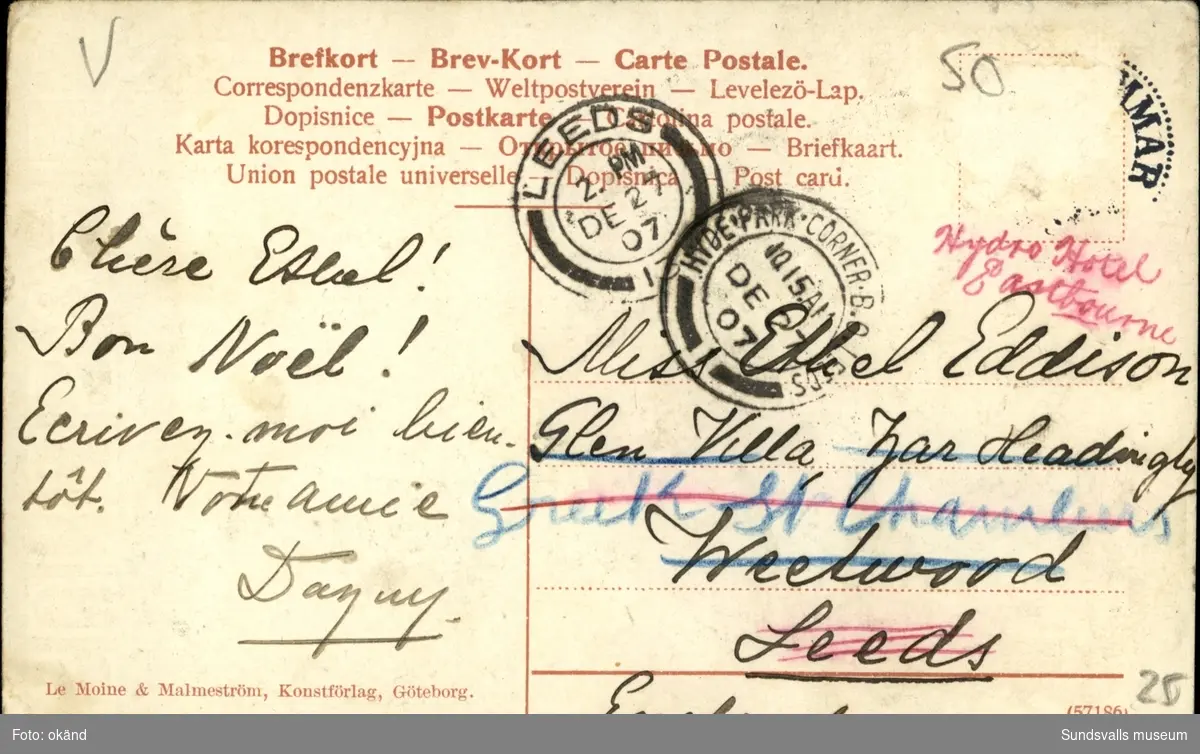 V
50
Brefkort — Brev-Kort — Carte Postale.
Correspondenzkarte — Weltpostverein — Levelező-Lap.
Dopisnice — Postkarte — Cartolina postale.
Karta korespondencyjna — Открытое письмо — Briefkaart.
Union postale universelle — Dopisnica — Post card.
LEEDS
2. PM
DE 27
07
1
HYDE·PARK·CORNER·B.O. LEEDS
10.15AM
DE 27
07
MMAR
Hydro Hotel
Eastbourne
Chère Ethel!
Bon Noël!
Ecrivez-moi bien-
tôt. Votre amie
Dagny
Miss Ethel Eddison
Glen Villa, Far Headingly
Greek St Chambers
Weetwood
Leeds
Le Moine & Malmeström, Konstförlag, Göteborg.
25
(57186)
Foto: okänd
Sundsvalls museum